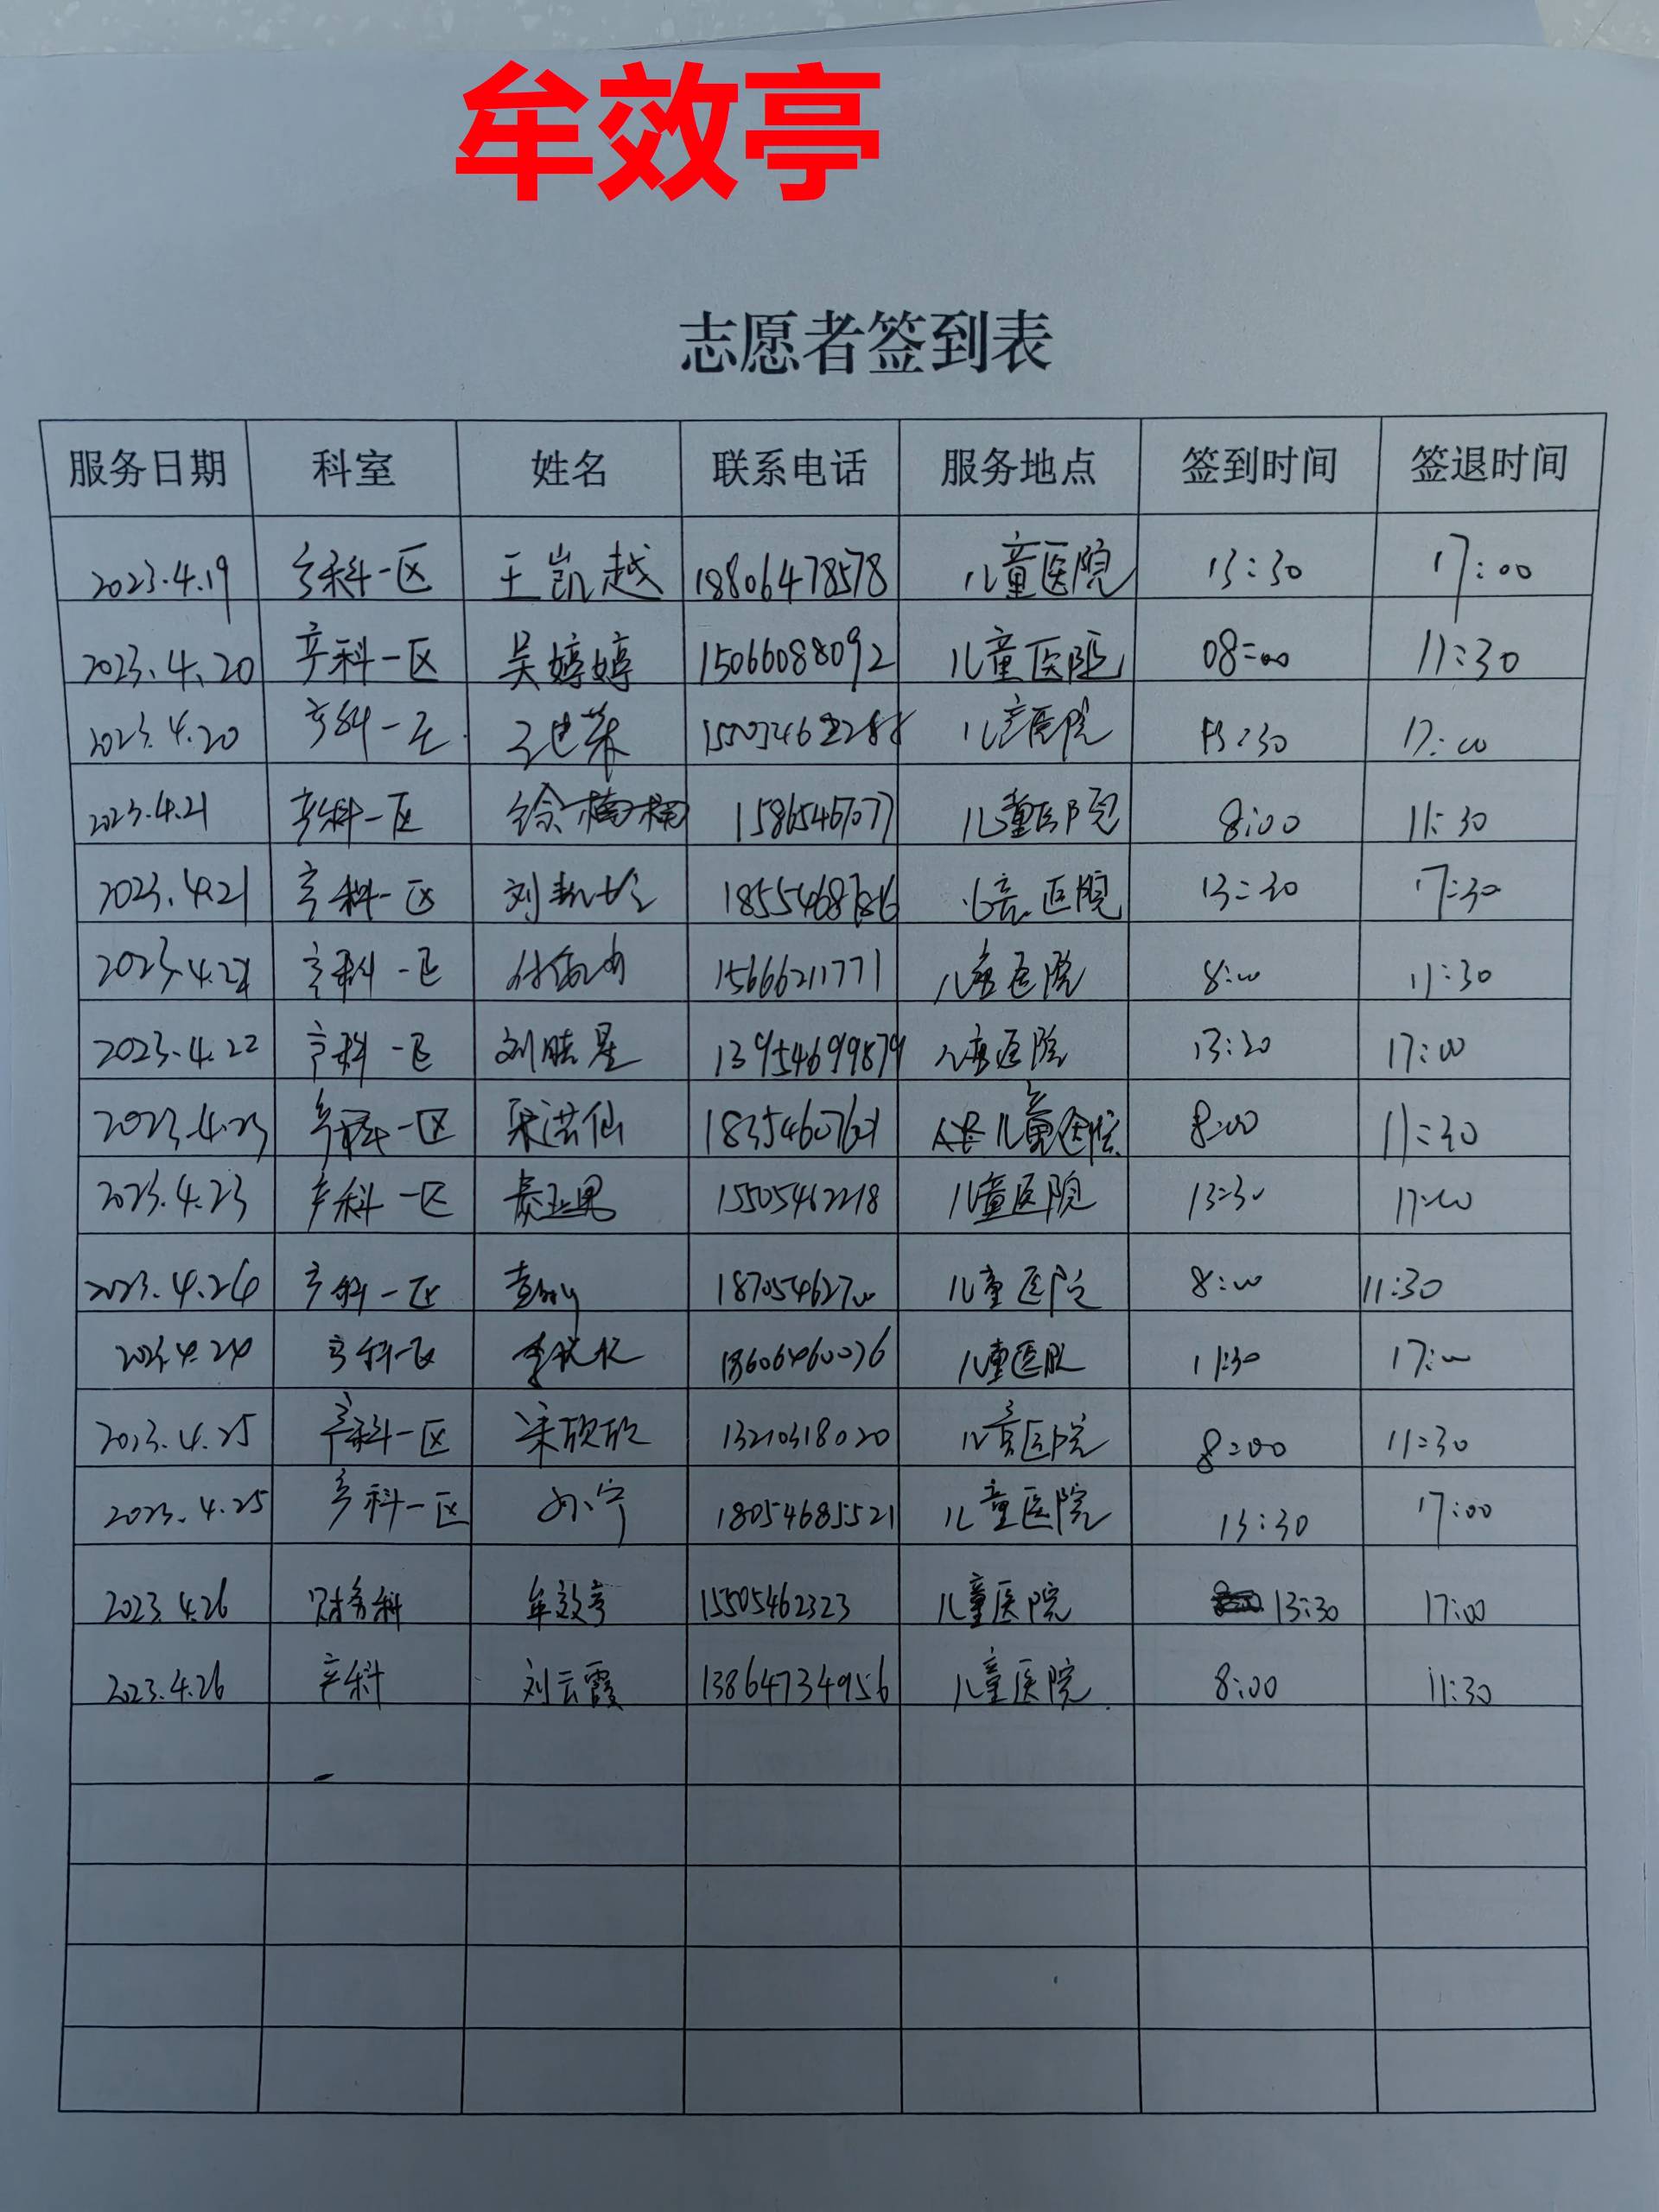 牟效亭
志愿者签到表
服务日期 科室 姓名 联系电话 服务地点 签到时间 签退时间
2023.4.19 产科一区 王凯越 18806478578 儿童医院 13:30 17:00
2023.4.20 产科一区 吴婷婷 15066088092 儿童医院 08:00 11:30
2023.4.20 产科一区 儿童医院 13:30 17:00
2023.4.21 产科一区 徐楠楠 儿童医院 8:00 11:30
2023.4.21 产科一区 儿童医院 13:30 17:30
产科一区 15666211771 儿童医院 8:00 11:30
2023.4.22 产科一区 13954699879 儿童医院 13:30 17:00
2023.4.23 产科一区 儿童医院 8:00 11:30
2023.4.23 产科一区 15505462218 儿童医院 13:30 17:00
2023.4.24 产科一区 18705462700 儿童医院 8:00 11:30
2023.4.24 产科一区 儿童医院 11:30 17:00
2023.4.25 产科一区 宋欣欣 13210318020 儿童医院 8:00 11:30
2023.4.25 产科一区 孙宁 18054685521 儿童医院 13:30 17:00
2023.4.26 财务科 牟效亭 15505462323 儿童医院 13:30 17:00
2023.4.26 产科 刘云霞 13864734956 儿童医院 8:00 11:30